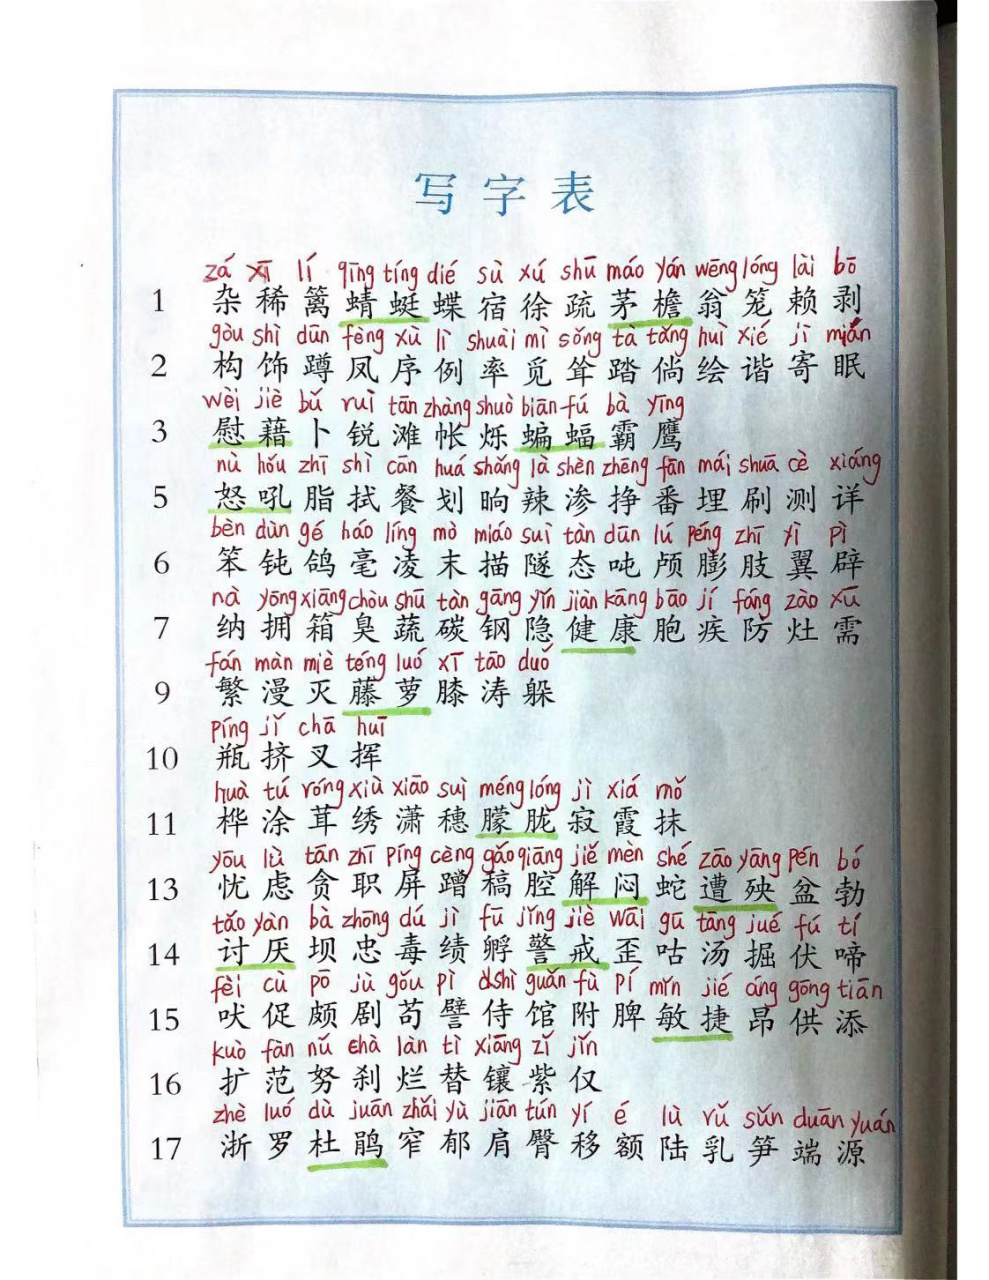 写字表
zá xī lí qīng tíng dié sù xú shū máo yán wēng lóng lài bō
1 杂稀篱蜻蜓蝶宿徐疏茅檐翁笼赖剥
gòu shì dūn fèng xù lì shuài mì sǒng tà tǎng huì xié jì mián
2 构饰蹲凤序例率觅耸踏倘绘谐寄眠
wèi jiè bǔ ruì tān zhàng shuò biān fú bà yīng
3 慰藉卜锐滩帐烁蝙蝠霸鹰
nù hǒu zhī shì cān huá shǎng là shèn zhēng fān mái shuā cè xiáng
5 怒吼脂拭餐划晌辣渗挣番埋刷测详
bèn dùn gē háo líng mò miáo suì tàn dūn lú péng zhī yì pì
6 笨钝鸽毫凌末描隧态吨颅膨肢翼辟
nà yōng xiāng chòu shū tàn gāng yǐn jiàn kāng bāo jí fáng zào xū
7 纳拥箱臭蔬碳钢隐健康胞疾防灶需
fán màn miè téng luó xī tāo duǒ
9 繁漫灭藤萝膝涛躲
píng jǐ chā huī
10 瓶挤叉挥
huà tú róng xiù xiāo suì méng lóng jì xiá mǒ
11 桦涂茸绣潇穗朦胧寂霞抹
yōu lǜ tān zhī píng cèng gǎo qiāng jiě mèn shé zāo yāng pén bó
13 忧虑贪职屏蹭稿腔解闷蛇遭殃盆勃
tǎo yàn bà zhōng dú jì fū jǐng jiè wāi gū tāng jué fú tí
14 讨厌坝忠毒绩孵警戒歪咕汤掘伏啼
fèi cù pō jù gǒu pì shì guǎn fù pí mǐn jié áng gōng tiān
15 吠促颇剧苟譬侍馆附脾敏捷昂供添
kuò fàn nǔ chà làn tì xiāng zǐ jǐn
16 扩范努刹烂替镶紫仅
zhè luó dù juān zhǎi yù jiān tún yí é lù rǔ sǔn duān yuán
17 浙罗杜鹃窄郁肩臀移额陆乳笋端源